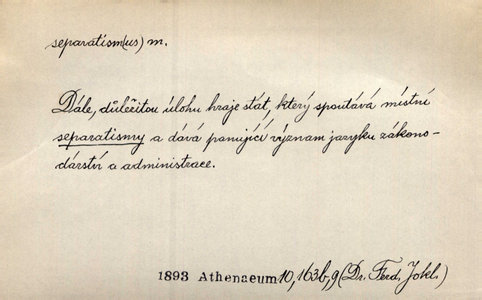 separatism(us) m.
Dále, důležitou úlohu hraje stát, který spoutává místní
separatismy a dává panující význam jazyku zákono-
dárství a administrace.
1893 Athenaeum 10, 163b, 9 (Dr. Ferd. Jokl.)